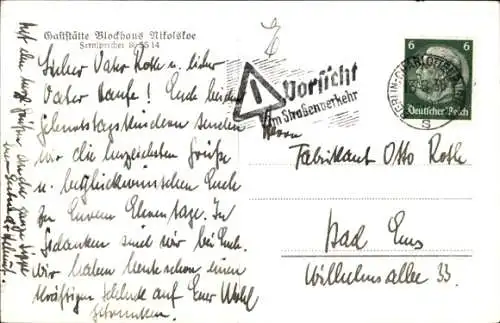 Gaststätte Blockhaus Nikolskoe
Fernsprecher 80 55 14
Lieber Vater Roth u. lieber
Vater Haufe! Euch beiden
Geburtstagskindern senden
wir die herzlichsten Grüße
u. beglückwünschen Euch
zu Eurem Ehrentage. In
Gedanken sind wir bei Euch.
Wir haben heute schon einen
kräftigen Schluck auf Euer Wohl
getrunken.
Mit den herzl. Grüßen an die ganze Sippe
Vorsicht
im Straßenverkehr
BERLIN-CHARLOTTENBURG
6
6
Deutsches Reich
Herrn
Fabrikant Otto Roth
Bad Ems
Wilhelmsallee 33.